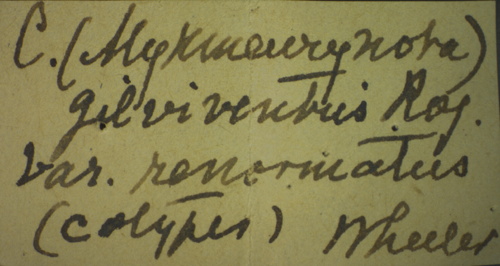 C. (Myrmeurynota)
gilviventris Rog.
var. renormatus
(cotypes) Wheeler